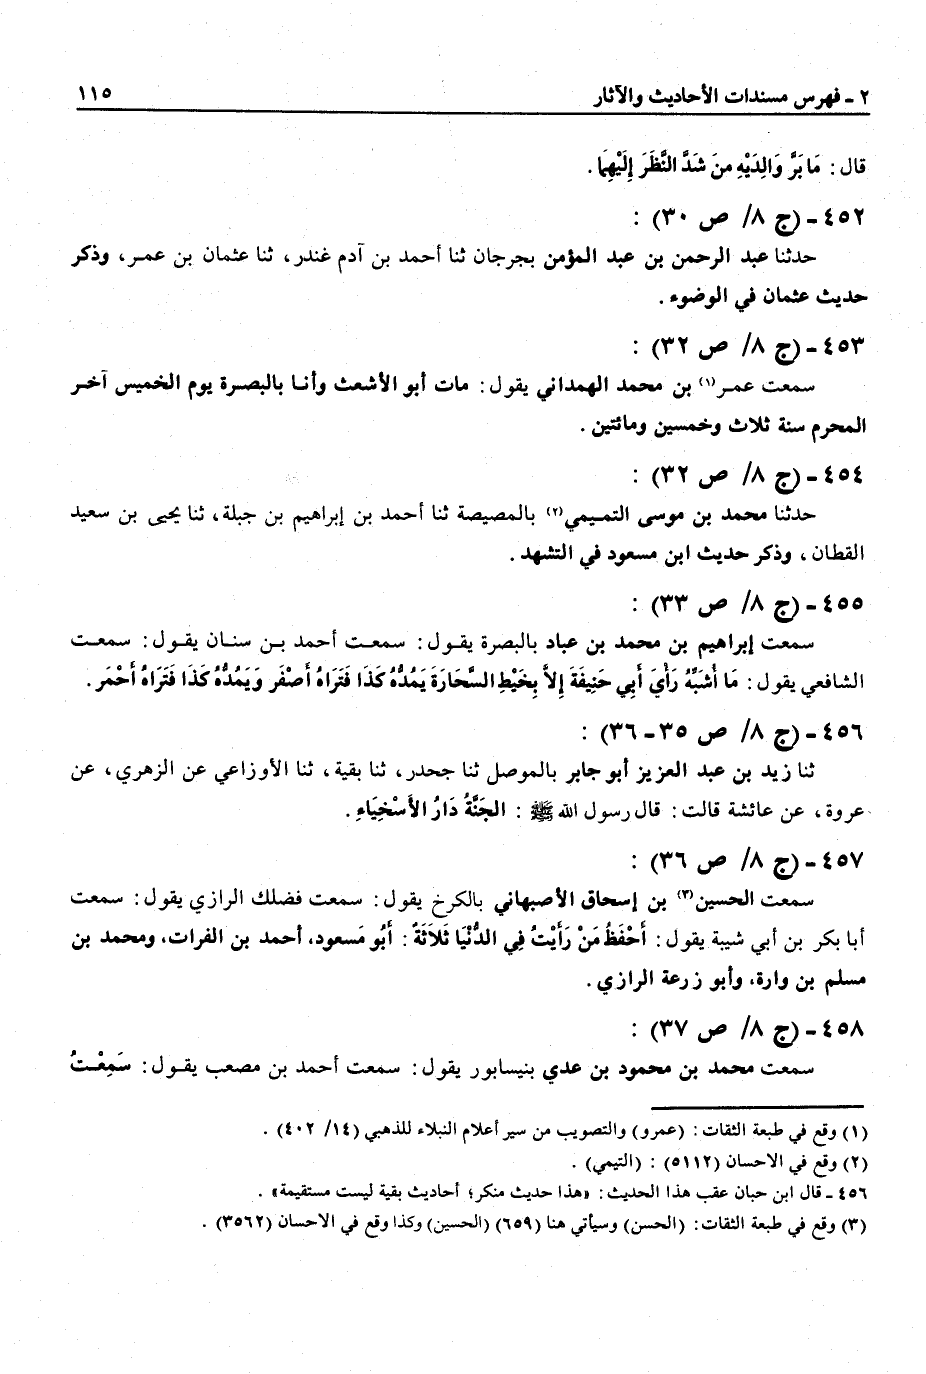 ٢ - فهرس مسندات الأحاديث والآثار ١١٥
قال : مَا بَرَّ وَالِدَيْهِ مَنْ شَدَّ النَّظَرَ إِلَيْهِمَا .
٤٥٢ - (ج ٨/ ص ٣٠) :
حدثنا عبد الرحمن بن عبد المؤمن بجرجان ثنا أحمد بن آدم غندر، ثنا عثمان بن عمر، وذكر
حديث عثمان في الوضوء .
٤٥٣ - (ج ٨/ ص ٣٢) :
سمعت عمر(١) بن محمد الهمداني يقول : مات أبو الأشعث وأنا بالبصرة يوم الخميس آخر
المحرم سنة ثلاث وخمسين ومائتين .
٤٥٤ - (ج ٨/ ص ٣٢) :
حدثنا محمد بن موسى التميمي(٢) بالمصيصة ثنا أحمد بن إبراهيم بن جبلة، ثنا يحيى بن سعيد
القطان، وذكر حديث ابن مسعود في التشهد .
٤٥٥ - (ج ٨/ ص ٣٣) :
سمعت إبراهيم بن محمد بن عباد بالبصرة يقول : سمعت أحمد بن سنان يقول : سمعت
الشافعي يقول : مَا أُشَبِّهُ رَأْيَ أَبِي حَنِيفَةَ إِلاَّ بِخَيْطِ السَّحَارَةَ يَمُدُّهُ كَذَا فَتَرَاهُ أَصْفَر وَيَمُدُّهُ كَذَا فَتَرَاهُ أَحْمَر .
٤٥٦ - (ج ٨/ ص ٣٥ - ٣٦) :
ثنا زيد بن عبد العزيز أبو جابر بالموصل ثنا جحدر، ثنا بقية، ثنا الأوزاعي عن الزهري، عن
عروة، عن عائشة قالت : قال رسول الله ﷺ : الجَنَّةُ دَارُ الأَسْخِيَاءِ .
٤٥٧ - (ج ٨/ ص ٣٦) :
سمعت الحسين(٣) بن إسحاق الأصبهاني بالكرخ يقول : سمعت فضلك الرازي يقول : سمعت
أبا بكر بن أبي شيبة يقول : أَحْفَظُ مَنْ رَأَيْتُ فِي الدُّنْيَا ثَلاَثَةٌ : أَبُو مَسعود، أحمد بن الفرات، ومحمد بن
مسلم بن وارة، وأبو زرعة الرازي .
٤٥٨ - (ج ٨/ ص ٣٧) :
سمعت محمد بن محمود بن عدي بنيسابور يقول : سمعت أحمد بن مصعب يقول : سَمِعْتُ
(١) وقع في طبعة الثقات : (عمرو) والتصويب من سير أعلام النبلاء للذهبي (١٤/ ٤٠٢) .
(٢) وقع في الاحسان (٥١١٢) : (التيمي) .
٤٥٦ - قال ابن حبان عقب هذا الحديث : «هذا حديث منكر؛ أحاديث بقية ليست مستقيمة» .
(٣) وقع في طبعة الثقات : (الحسن) وسيأتي هنا (٦٥٩) (الحسين) وكذا وقع في الاحسان (٣٥٦٢) .